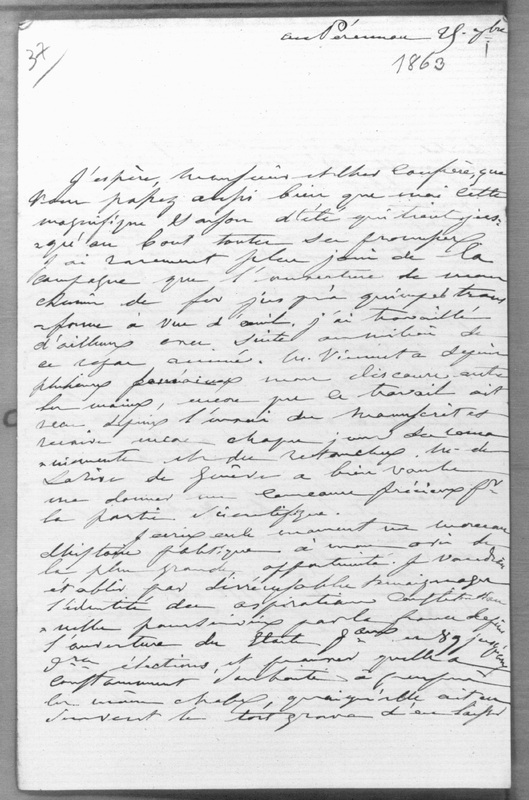 37
au Pérennou 25 7bre
1863
J'espère, Monsieur et cher Confrère, que
vous passez aussi bien que moi cette
magnifique saison d'été qui tient jus-
-qu'au bout toutes ses promesses.
J'ai rarement plus joui de la
campagne que l'ouverture de mon
chemin de fer jusqu'à Quimper trans
-forme à vue d'œil. J'ai travaillé
d'ailleurs avec suite au milieu de
ce repos animé. M. Vivien a depuis
plusieurs semaines mon discours entre
les mains, encore que ce travail ait
reçu depuis l'envoi du manuscrit et
reçoive encore chaque jour des rema
-niements et des retouches. M. de
Larive de Genève a bien voulu
me donner un concours précieux pr
la partie scientifique.
J'écris en ce moment un morceau
d'histoire politique à mon avis de
la plus grande opportunité. Je voudrais
établir par d'irrécusables témoignages
l'identité des aspirations constitution
-nelles poursuivies par la france depuis
l'ouverture des États gaux en 89 jusqu'aux
dres élections, et prouver qu'elle a
constamment souhaité à peu près
les mêmes choses, quoiqu'elle ait eu
souvent le tort grave d'en laisser